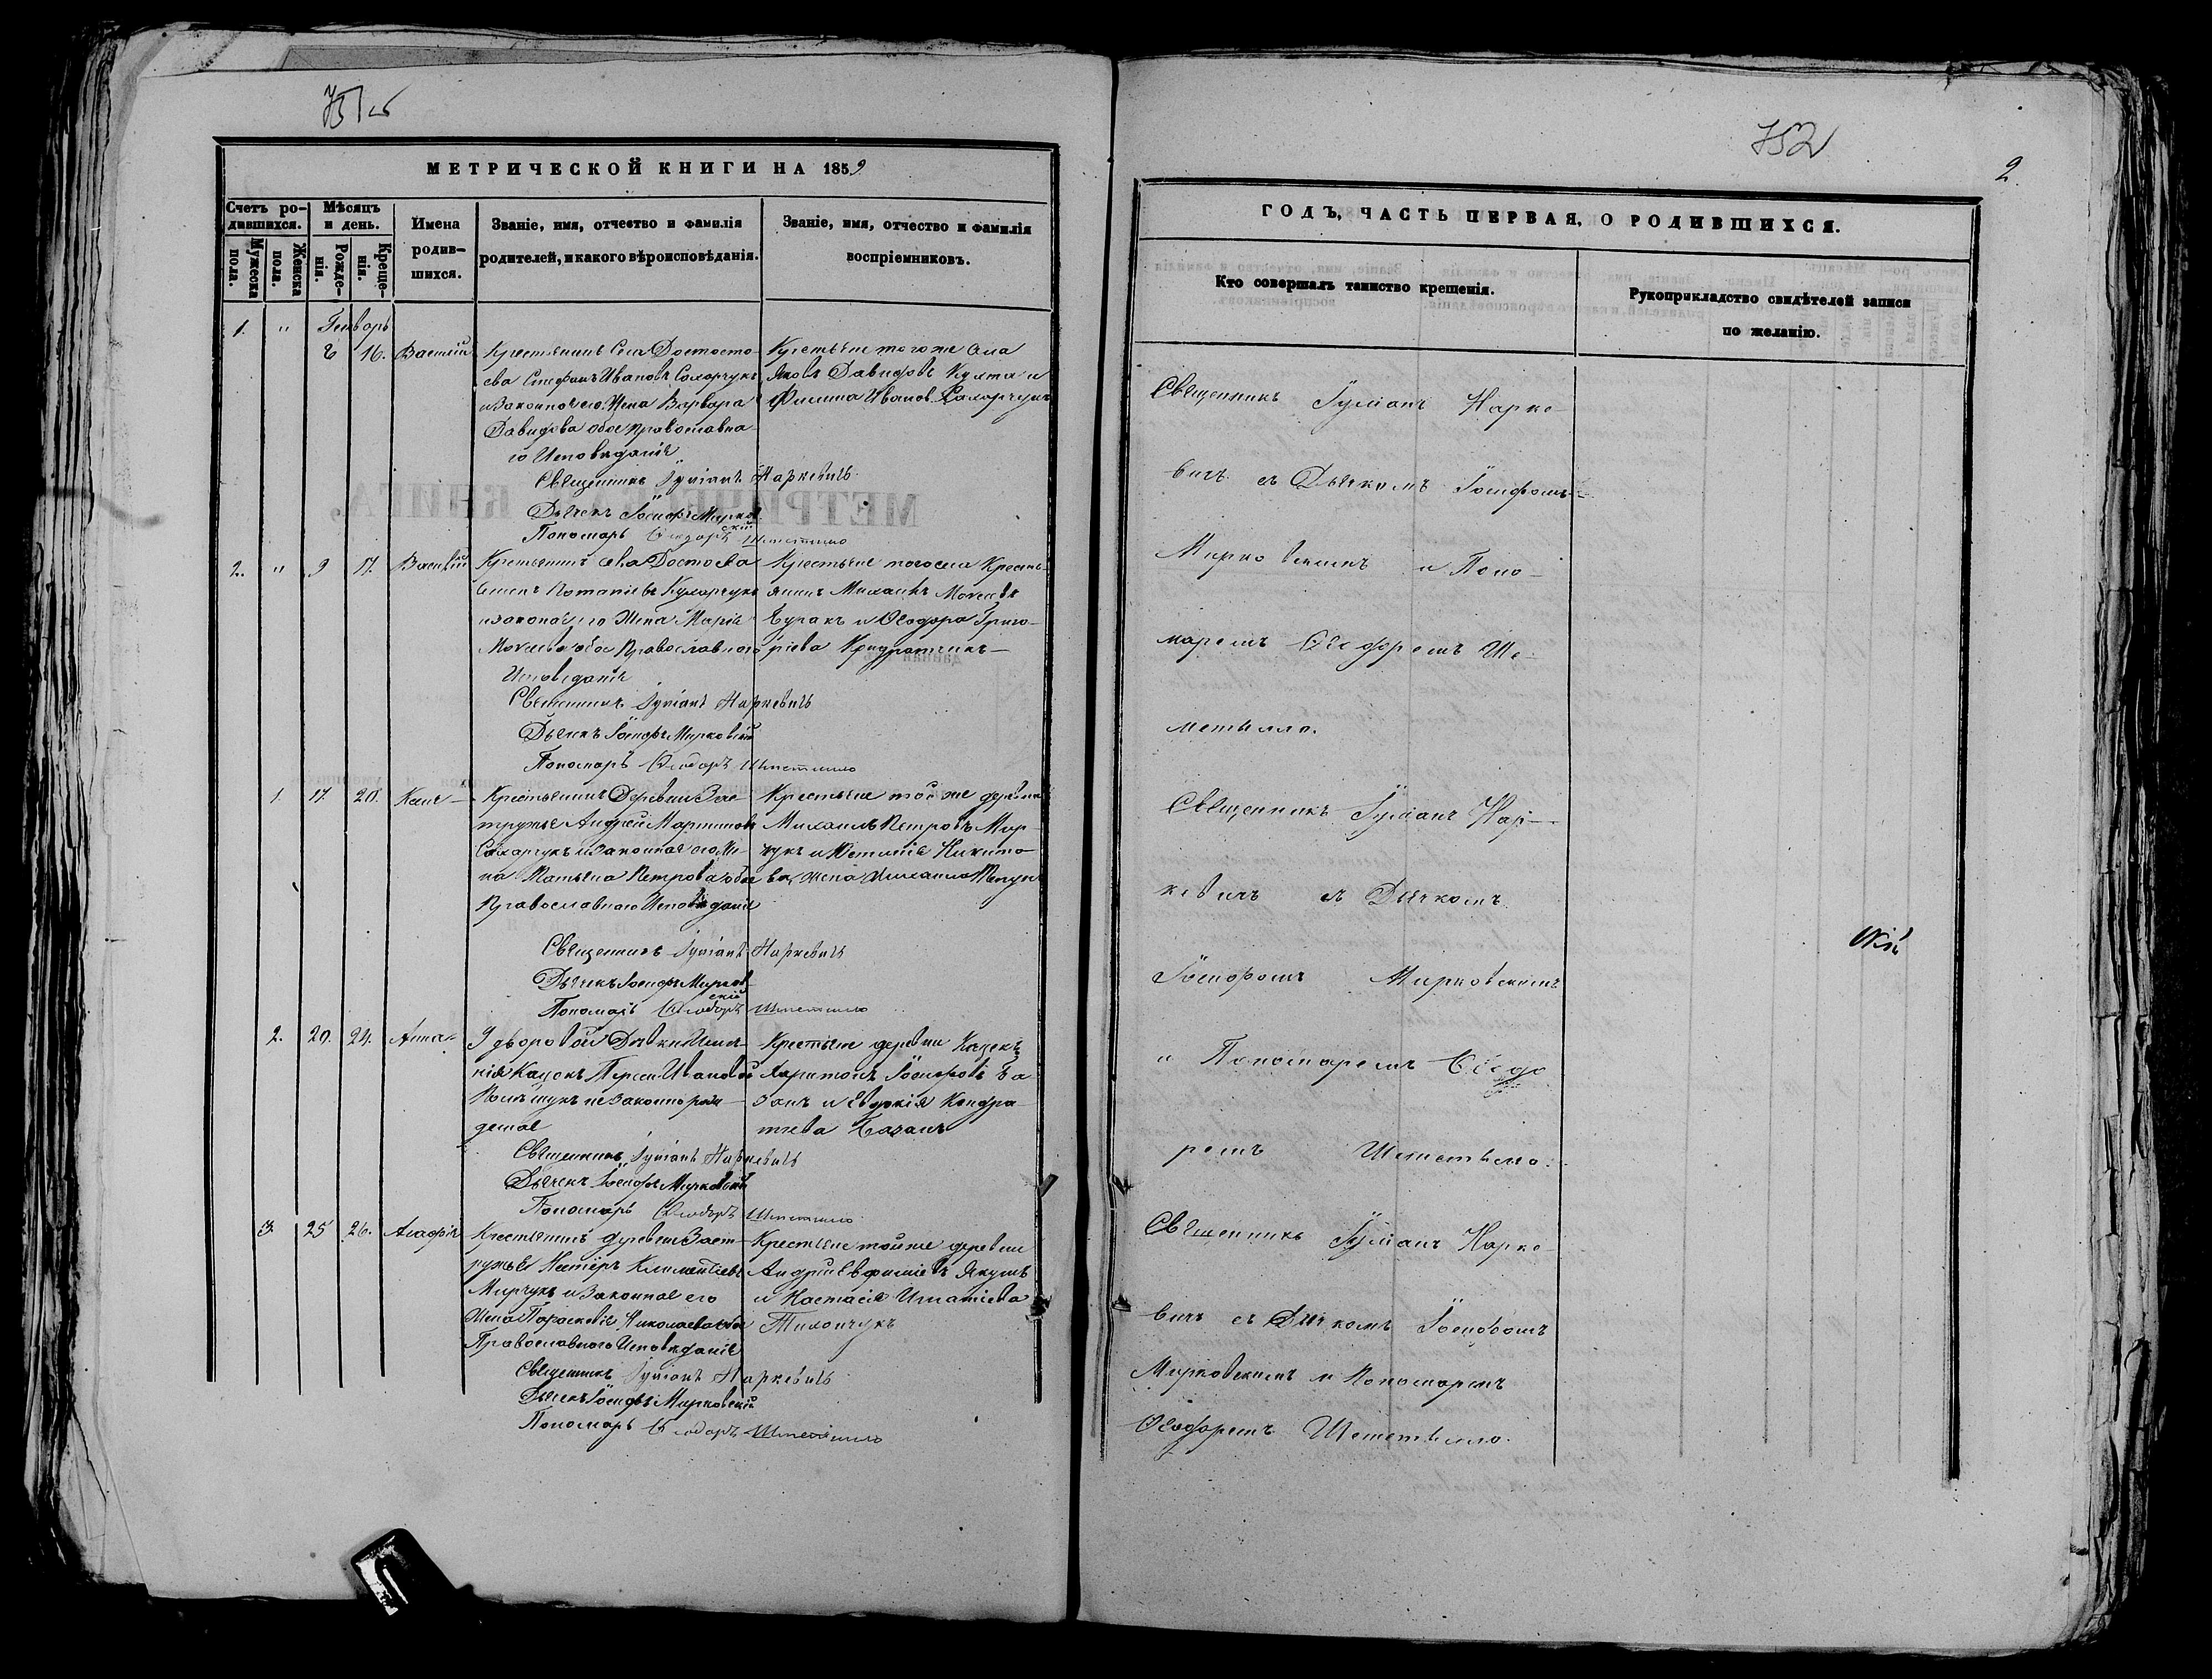 МЕТРИЧЕСКОЙ КНИГИ НА 1859
Счетъ ро-
дившихся.
Мѣсяцъ
и день.
Мужеска
пола.
Женска
пола.
Рожде-
нія.
Креще-
нія.
Имена
родив-
шихся.
Званіе, имя, отчество и фамилія
родителей, и какого вѣроисповѣданія.
Званіе, имя, отчество и фамилія
воспріемниковъ.
1. " Генварь
6 16. Василій
Крестьянинъ Села Достоето-
ева Стефанъ Ивановъ Сахарчукъ
и Законная его Жена Варвара
Давидова обое православна-
го Исповѣданія
Священникъ Іуліанъ Наркевичъ
Дьячекъ Іосифъ Мирков
скій
Пономарь Ѳеодоръ Шеметилло
Крестьяне того же Села
Яковъ Давидовъ Култа и
Филипа Иванов. Сахарчукъ
2. " 9 17. Василій
Крестьянинъ села Достоева
Семенъ Потапіевъ Кухарчукъ
и законая его Жена Марія
Моисеева обое Православного
Исповеданія
Священникъ Іуліанъ Наркевичъ
Дьячекъ Іосифъ Мирковскій
Пономарь Ѳеодоръ Шеметилло
Крестьяне того села Кресть-
янинъ Михаилъ Моисеевъ
Буракъ и Ѳеодора Григо-
ріева Кондратчикъ
1. 17. 20. Ксенія
Крестьянинъ Деревни Зас-
тружье Андрей Мартиновъ
Сахарчукъ и Законная его Же-
на Матьяна Петрова обое
Православнаго Исповѣданія
Священникъ Іуліанъ Наркевичъ
Дьячекъ Іосифъ Мирков-
скій
Пономарь Ѳеодоръ Шеметилло
Крестьяне той же деревни
Михаилъ Петровъ Мир-
чукъ и Никито-
ва жена Михаила
2. 20. 24. Анна
У дворовой Дѣвки Име-
нія Кацокъ Ивановой
Полѣщукъ незаконнорож-
деная
Священникъ Іуліанъ Наркевичъ
Дьячекъ Іосифъ Мирковскій
Пономарь Ѳеодоръ Шеметилло
Крестьяне деревни Кацекъ
Харитонъ Іосифовъ Ба-
занъ и Евдокія Кондра-
тіева Базанъ
3. 25 26. Агафія
Крестьянинъ деревни Заст-
ружья Нестеръ Климентіевъ
Мирчукъ и Законная его
Жена Параскевія Николаева обое
Православного Исповѣданія
Священникъ Іуліанъ Наркевичъ
Дьячекъ Іосифъ Мирковскій
Пономарь Ѳеодоръ Шеметилло
Крестьяне той же деревни
Андрій Евфиміевъ Якушъ
и Настасія Игнатіева
Тихончукъ
752
2.
ГОДЪ, ЧАСТЬ ПЕРВАЯ, О РОДИВШИХСЯ.
Кто совершалъ таинство крещенія.
Рукоприкладство свидѣтелей записи
по желанію.
Священникъ Іуліанъ Нарке-
вичъ съ Дьячкомъ Іосифомъ
Мирковскимъ и Поно-
маремъ Ѳеодоремъ Ше-
метилло.
Священникъ Іуліанъ Нар-
кевичъ съ Дьячкомъ
Іосифомъ Мирковскимъ
и Пономаремъ Ѳеодо
ремъ Шеметилло.
Священникъ Іуліанъ Нарке-
вичъ съ Дьячкомъ Іосифомъ
Мирковскимъ и Пономаремъ
Ѳеодоремъ Шеметилло.